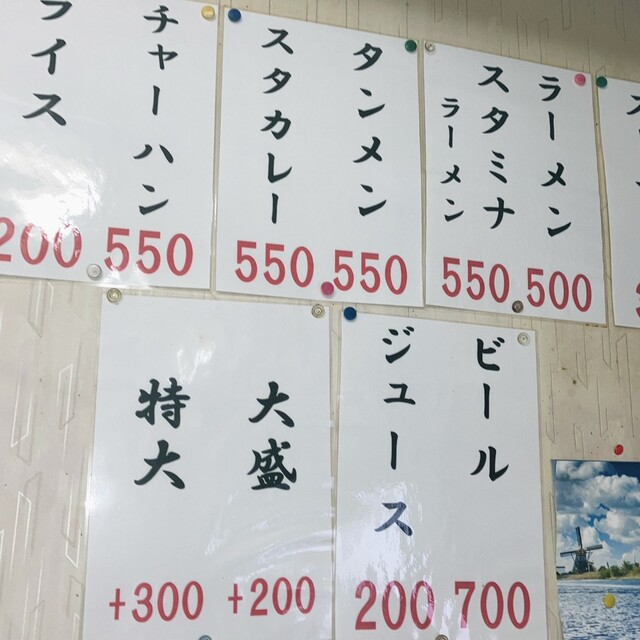 ラーメン
500
スタミナ
ラーメン
550
タンメン
550
スタカレー
550
チャーハン
550
ライス
200
ビール
700
ジュース
200
大盛
+200
特大
+300